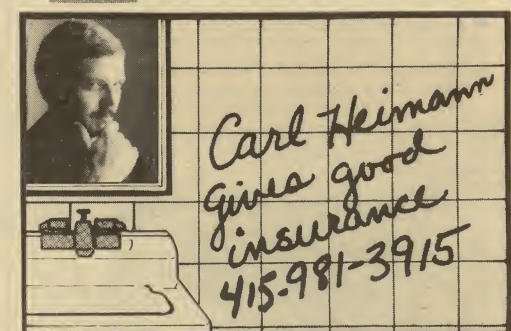 Carl Heimann
gives good
insurance
415-981-3915